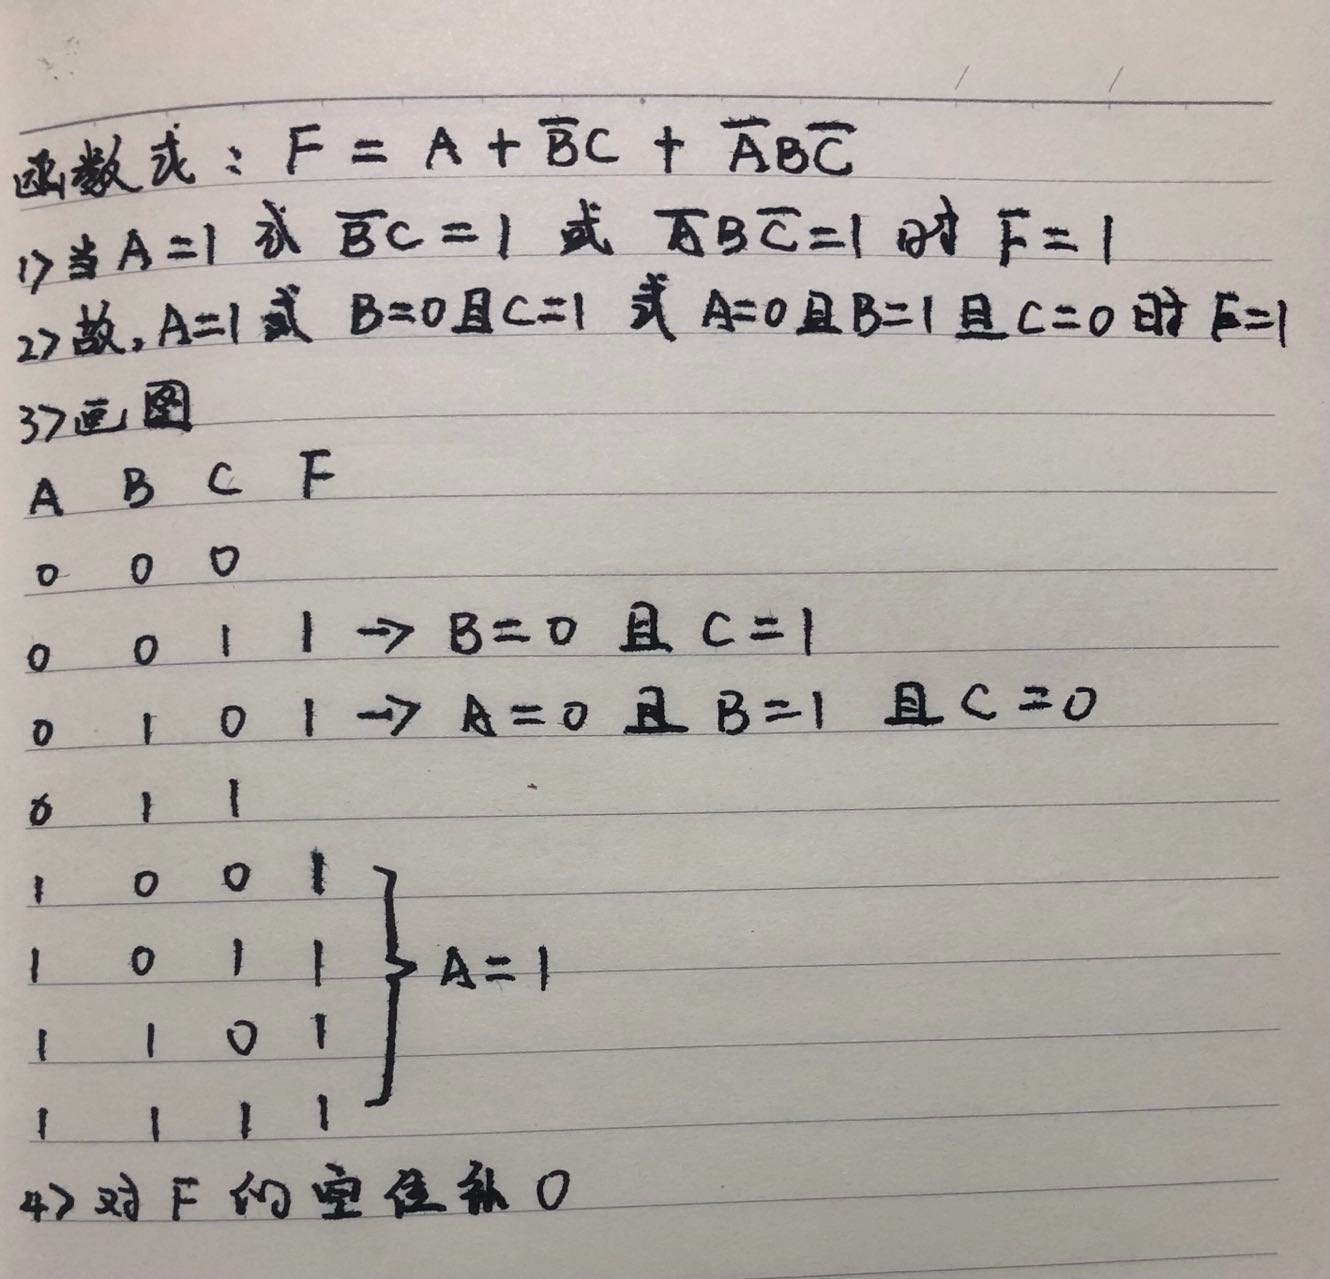 函数式：F = A + B̅C + A̅BC̅
1>当A=1 或 B̅C=1 或 A̅BC̅=1 时 F=1
2>故,A=1或 B=0且C=1 或 A=0且B=1且C=0时 F=1
3>画图
A B C F
0 0 0
0 0 1 1 → B=0 且 C=1
0 1 0 1 → A=0 且 B=1 且 C=0
0 1 1
1 0 0 1
1 0 1 1 } A=1
1 1 0 1
1 1 1 1
4>对F的空位补0